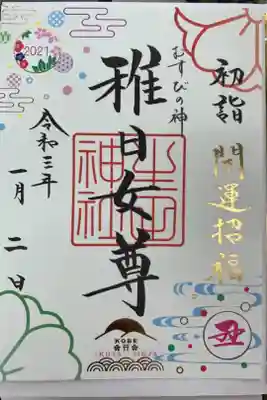 初詣
開運招福
丑
むすびの神
稚日女尊
生田神社
2021
令和三年
一月二日
KOBE
IKUTA JINJA